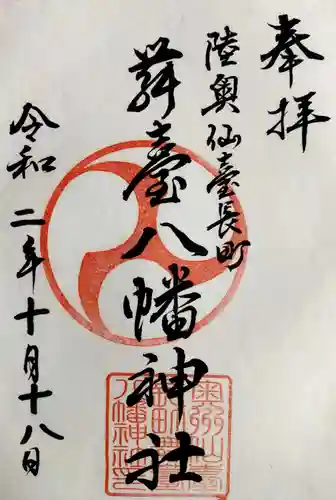 奉拝
陸奥仙臺長町
舞臺八幡神社
令和二年十月十八日